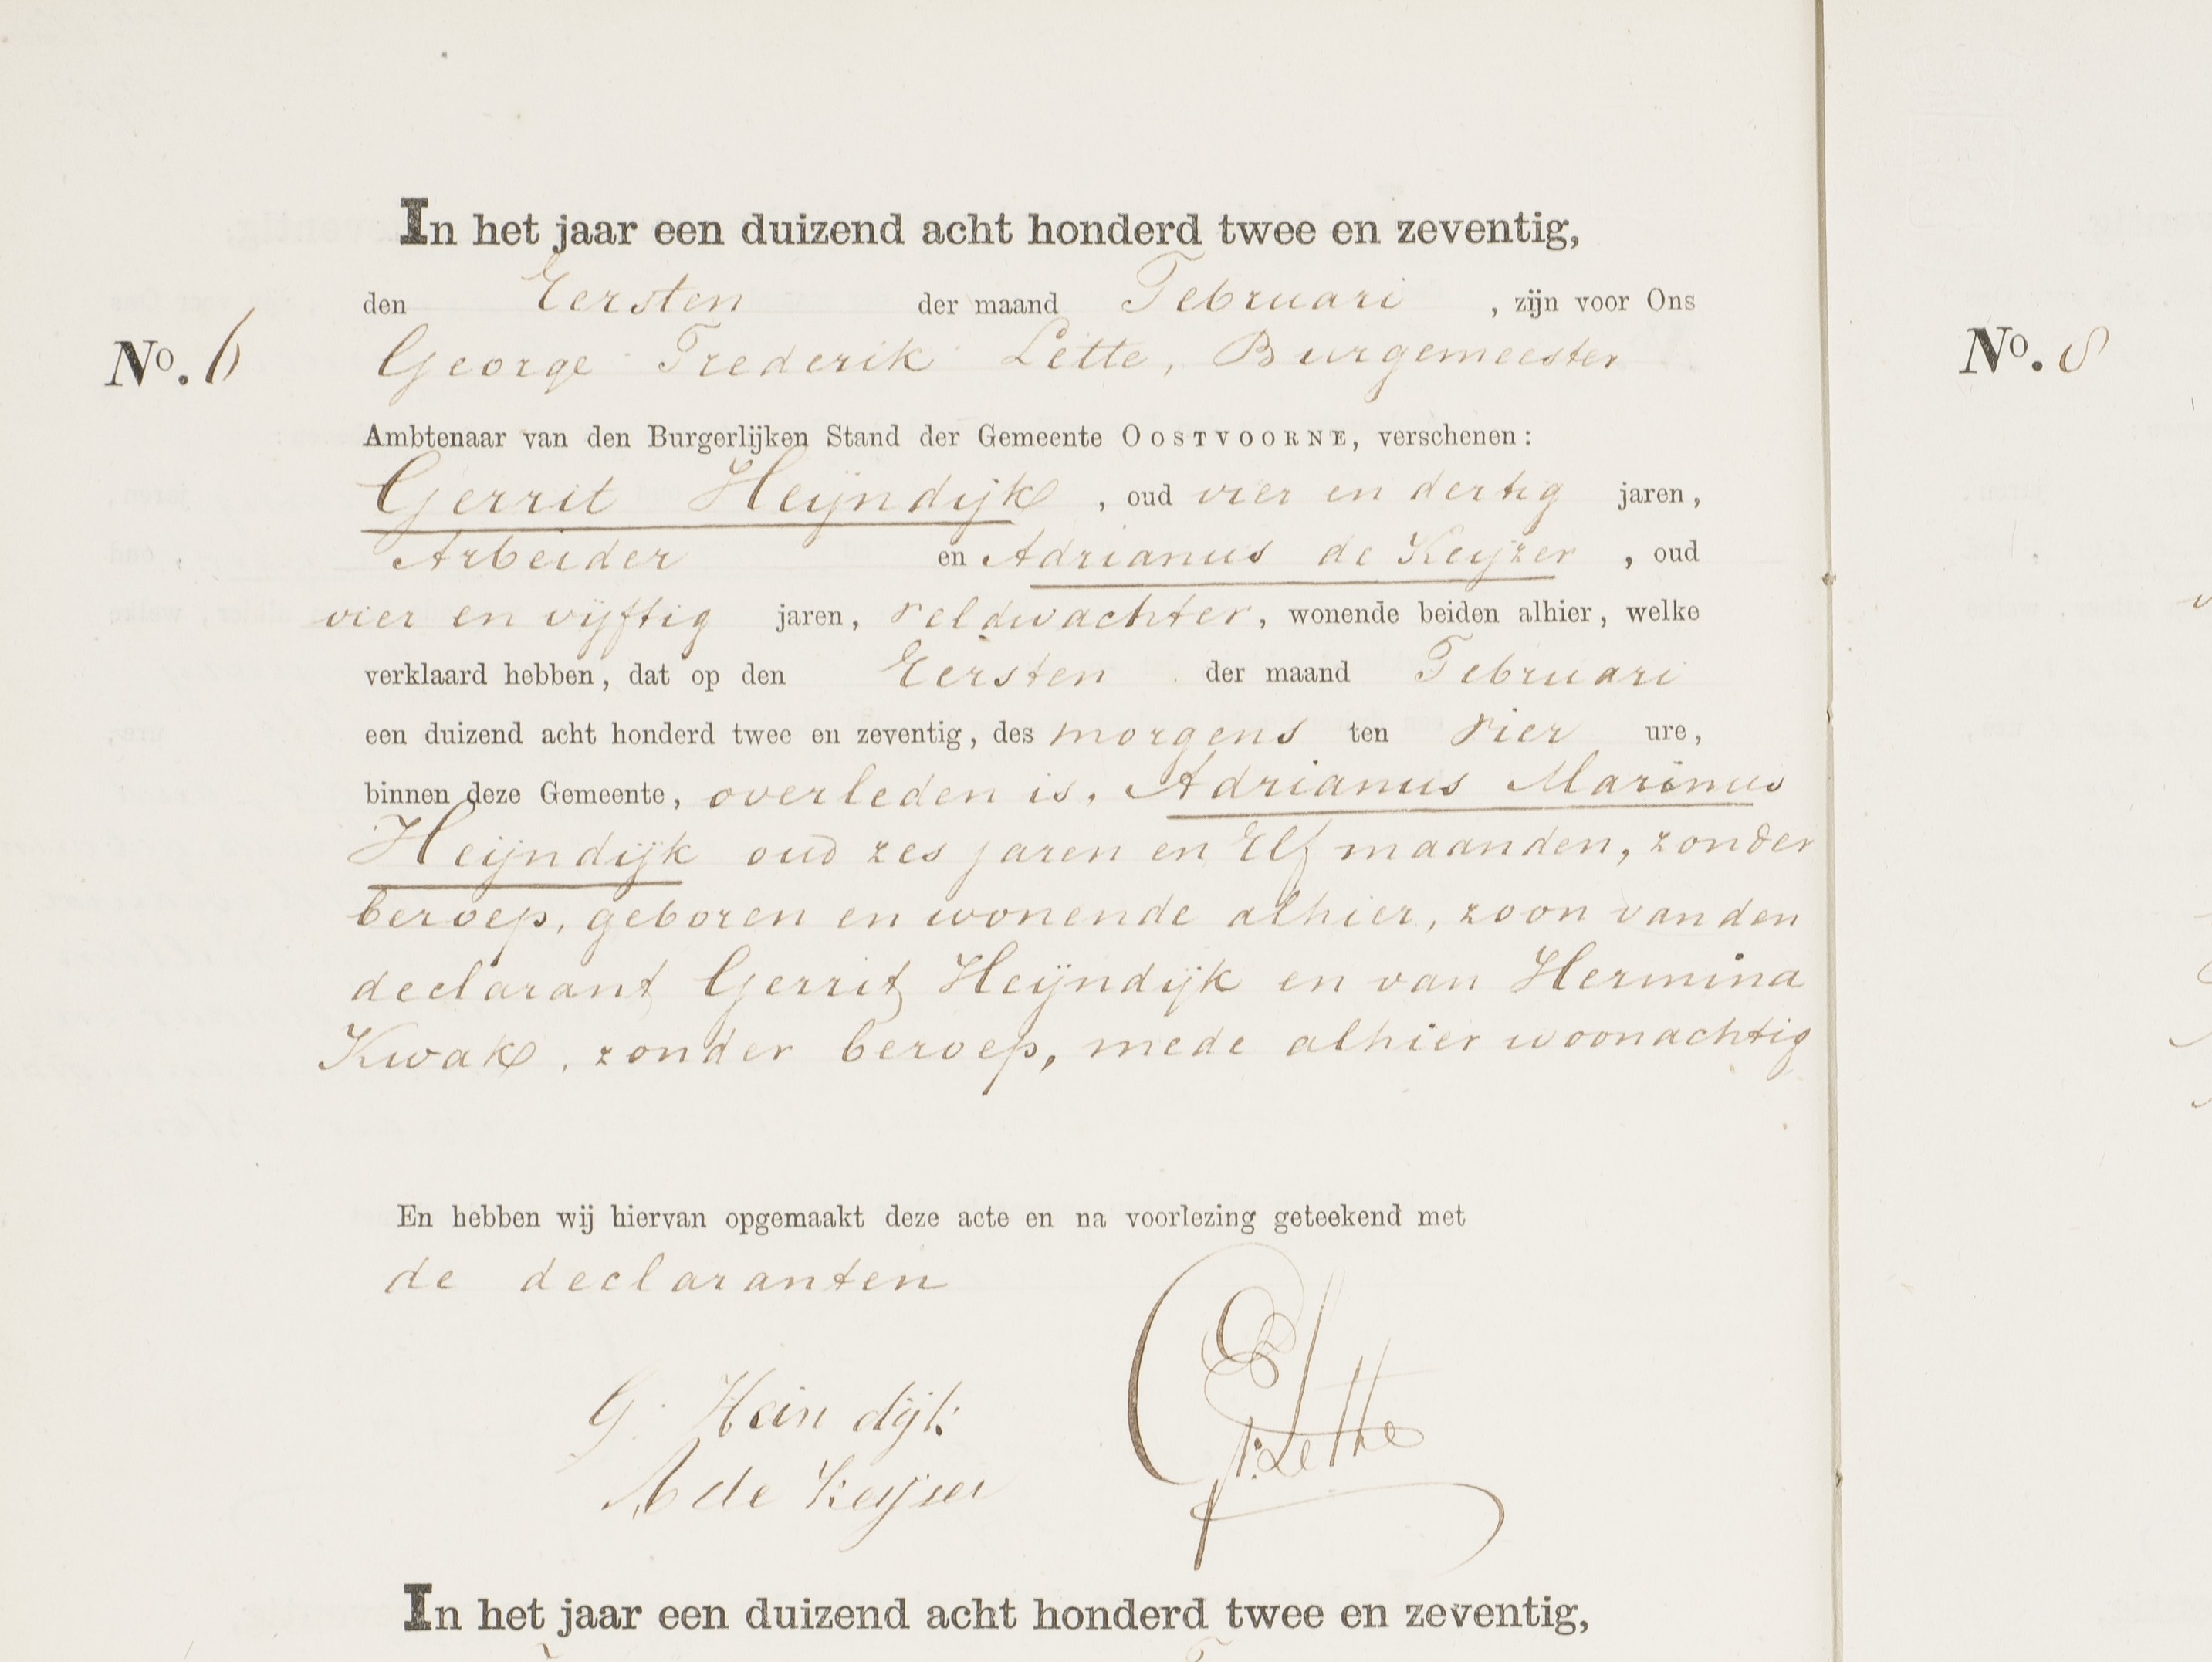 In het jaar een duizend acht honderd twee en zeventig,
den Eersten der maand Februari, zijn voor Ons
No. 6 George Frederik Lette, Burgemeester
Ambtenaar van den Burgerlijken Stand der Gemeente OOSTVOORNE, verschenen:
Gerrit Heijndijk, oud vier en dertig jaren,
Arbeider en Adrianus de Keijzer, oud
vier en vijftig jaren, veldwachter, wonende beiden alhier, welke
verklaard hebben, dat op den Eersten der maand Februari
een duizend acht honderd twee en zeventig, des morgens ten vier ure,
binnen deze Gemeente, overleden is, Adrianus Marinus
Heijndijk oud zes jaren en Elf maanden, zonder
beroep, geboren en wonende alhier, zoon van den
declarant Gerrit Heijndijk en van Hermina
Kwak, zonder beroep, mede alhier woonachtig
En hebben wij hiervan opgemaakt deze acte en na voorlezing geteekend met
de declaranten
G. Hein dijk
A de Keijser
Lette
In het jaar een duizend acht honderd twee en zeventig,
No. 8